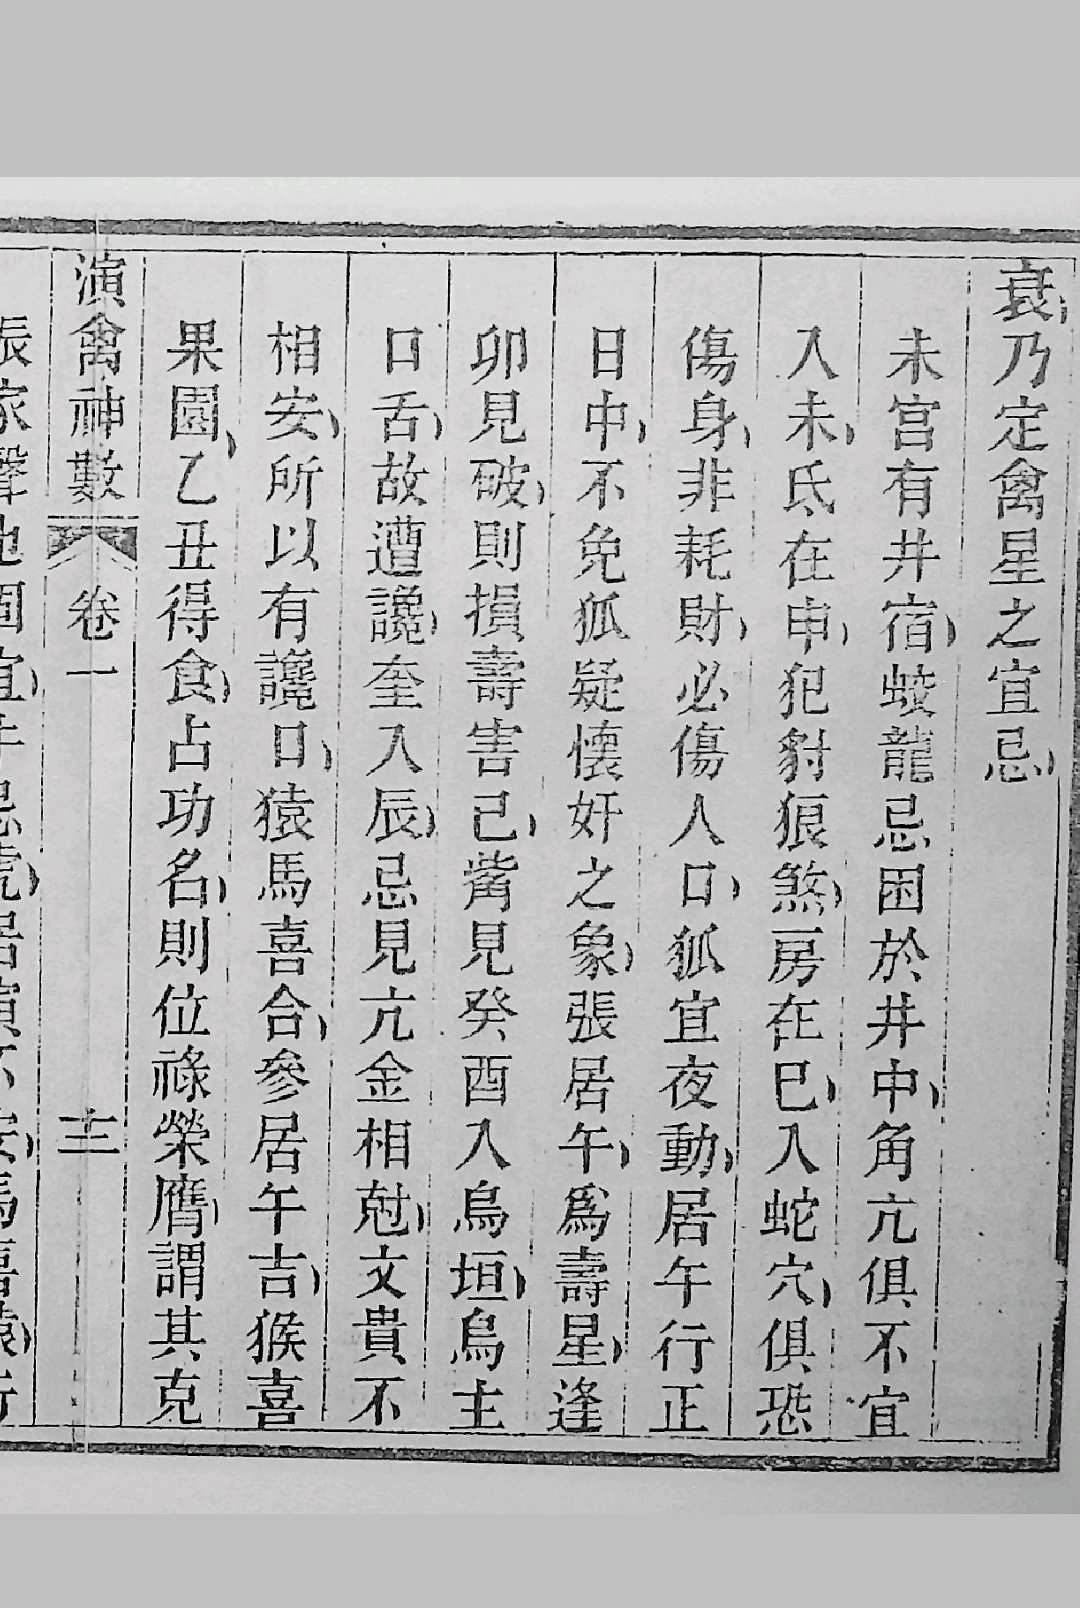 衰乃定禽星之宜忌
未宮有井宿蛟龍忌困於井中角亢俱不宜
入未氐在申犯豺狼煞房在巳入蛇穴俱恐
傷身非耗財必傷人口狐宜夜動居午行正
日中不免狐疑懷奸之象張居午爲壽星逢
卯見破則損壽害己觜見癸酉入烏垣烏主
口舌故遭讒奎入辰忌見亢金相尅文貴不
相安所以有讒口猿馬喜合參居午吉猴喜
果園乙丑得食占功名則位祿榮膺謂其克
演禽神數 卷一